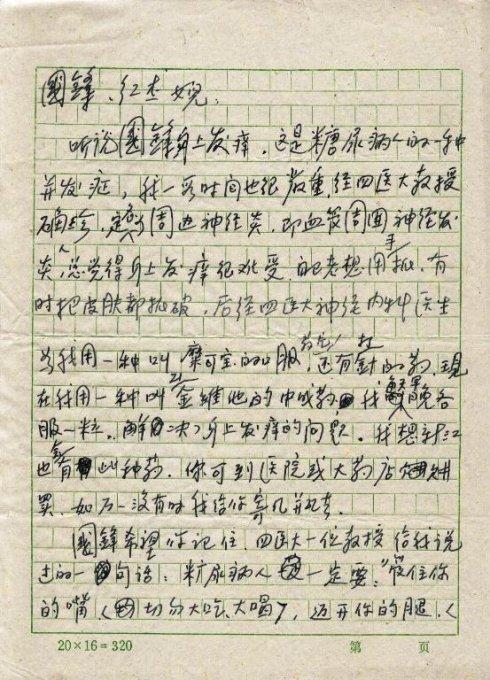 國鋒、红杰嫂:
听说國鋒身上发痒，这是糖尿病人的一种
并发症，我一段时间也很严重，经四医大教授
确诊，定为周边神经炎，即血管周围神经发
炎，人总觉得身上发痒很难受，老想用手抓，有
时把皮肤都抓破，后经四医大神经内科医生
为我用一种叫弥可宝的口服药，还有針的药，現
在我用一种叫金维他的中成药，我早晚各
服一粒，解决了身上发痒的问题。我想
也有此种药，你可到医院或大药店
買，如万一没有时我给你寄几并去。
國鋒希望你记住，四医大一位教授给我说
过的一句话：糖尿病人一定要"管住你
的嘴（切勿大吃、大喝），迈开你的腿，（
20×16=320 第 页